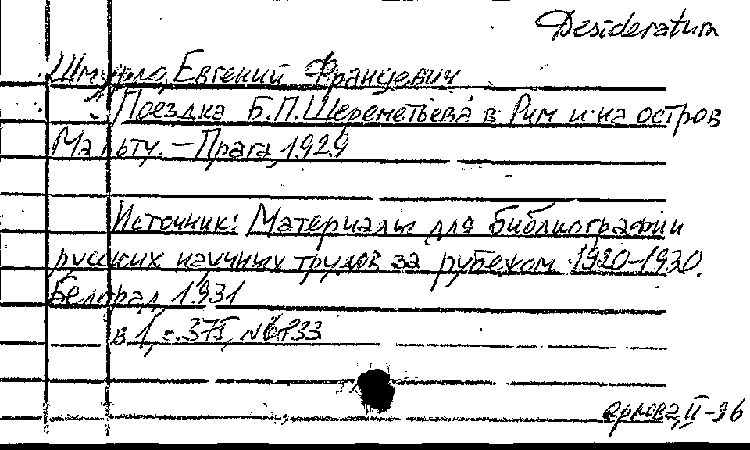 Desideratum
Шмурло, Евгений Францевич
Поездка Б.П. Шереметьева в Рим и на остров
Мальту. — Прага, 1929
Источник: Материалы для библиографии
русских научных трудов за рубежом 1920-1930.
Белград, 1931
в 1, с. 375,
II-96